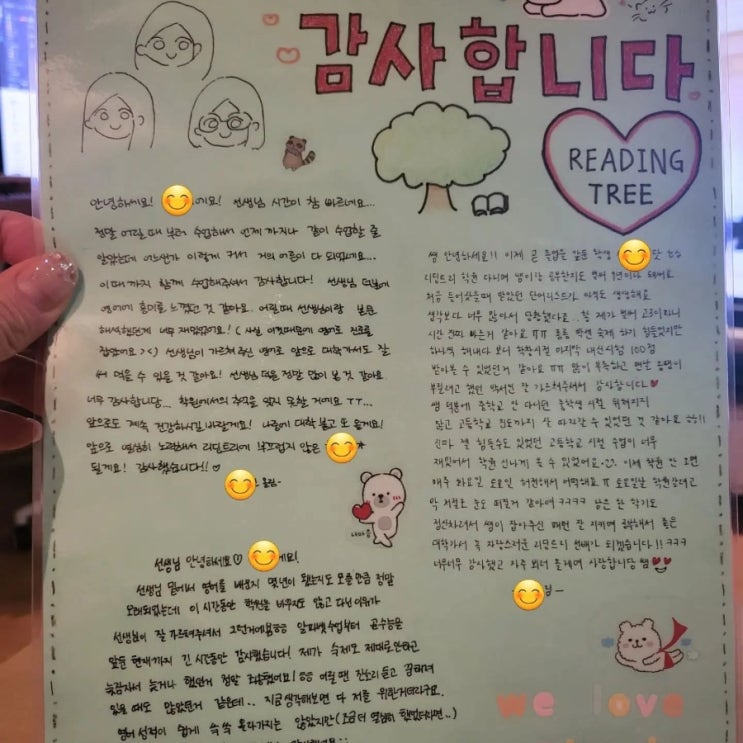 감사합니다
READING
TREE
안녕하세요! 에요! 선생님 시간이 참 빠르네요...
정말 어릴 때 부터 수업해서 언제까지나 같이 수업할 줄
알았는데 어느샌가 이렇게 커서 거의 어른이 다 되었네요...
이때까지 함께 수업해주셔서 감사합니다! 선생님 덕분에
영어에 흥미를 느꼈던 것 같아요. 어릴때 선생님이랑 본문
해석했던게 너무 재밌었어요! (사실 이것때문에 영어로 진로를
잡았어요 >_<) 선생님이 가르쳐주신 영어로 앞으로 대학가서도 잘
써먹을 수 있을 것 같아요! 선생님 덕을 정말 많이 본 것 같아요
너무 감사합니다... 학원에서의 추억을 잊지 못할 거예요 ㅜㅜ...
앞으로도 계속 건강하시길 바랄게요! 나중에 대학 붙고 또 올게요!
앞으로 열심히 노력해서 리딩트리에 부끄럽지 않은
될게요! 감사했습니다!! ♡
올림-
쌤 안녕하세요!! 이제 곧 졸업을 앞둔 학생
리딩트리 학원 다니며 쌤이랑 공부한지도 벌써 9년이나 됐네요
처음 들어왔을때 받았던 단어리스트가 아직도 생생해요
생각보다 너무 많아서 당황했다구요.. 절 제가 벌써 고3이라니
시간 진짜 빠른거 같아요 ㅠㅠ 종종 학원 숙제 하기 힘들었지만
하나씩 해내다 보니 학창시절 마지막 내신시험 100점
받아본 수 있었던거 같아요 ㅠㅠ 많이 부족하고 맨날 문법이
부질내고 했던 박서연 잘 가르쳐주셔서 감사합니다♥
쌤 덕분에 중학교 안 다니던 중학생 시절 뒤쳐지지
않고 고등학교 진도까지 잘 따라갈 수 있었던 것 같아요 ㅎㅎ!!
진짜 젤 힘들수도 있었던 고등학교 시절 수업이 너무
재밌어서 학원 신나게 올 수 있었어요. 이제 학원 안 오면
매주 화요일 토요일 허전해서 어떡해요 ㅠ 토요일날 학원갔다고
막 저절로 눈도 떠질거 같아여 ㅋㅋㅋㅋ 남은 한 학기도
정신차려서 쌤이 잡아주신 패턴 잘 지키며 공부해서 좋은
대학가서 꼭 자랑스러운 리딩트리 선배가 되겠습니다!! ㅋㅋㅋ
너무너무 감사했고 자주 뵈러 올게여 사랑합니당 쌤 ♥♥
림-
선생님 안녕하세요♡ 에요!
선생님 밑에서 영어를 배운지 몇년이 됐는지도 모를 만큼 정말
오래되었는데 이 시간동안 학원을 바꾸지도 않고 다닌 이유가
선생님이 잘 가르쳐주셔서 그런거에용ㅎㅎ 알파벳수업부터 곧 수능을
앞둔 현재까지 긴 시간동안 감사했습니다! 제가 숙제도 제대로안하고
늦잠자서 늦거나 했던거 정말 죄송했어요! ㅎㅎ 어릴 땐 잔소리 듣고 꿍해져
있을 때도 많았던거 같은데.. 지금생각해보면 다 저를 위한거더라구요.
영어 성적이 쉽게 쑥쑥 올라가지는 않았지만(조금더 열심히 했었더라면..)
we love